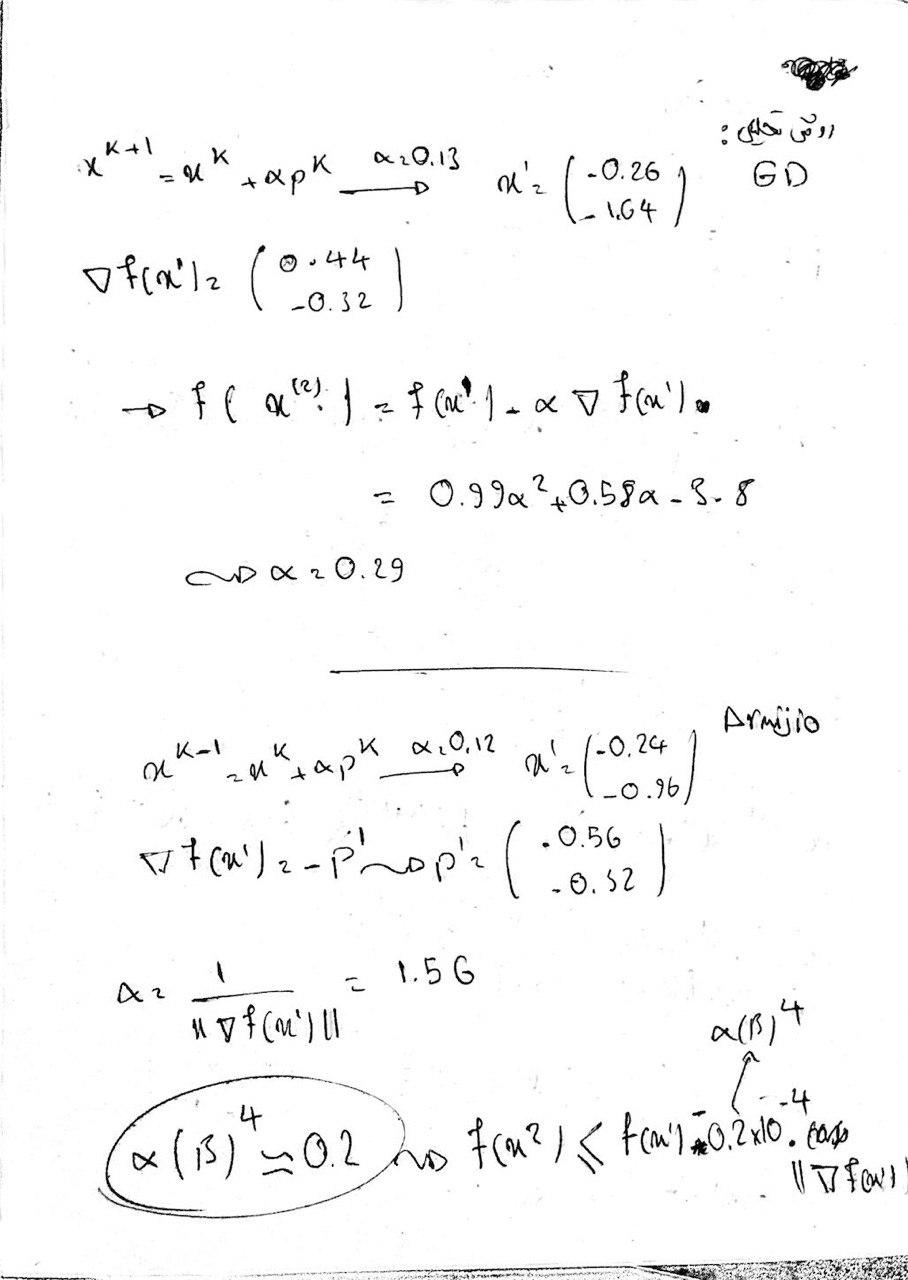 روش تحلیلی :
GD
x^{K+1} = x^K + αp^K \xrightarrow{α=0.13} x' = \begin{pmatrix} -0.26 \\ -1.04 \end{pmatrix}
∇f(x') = \begin{pmatrix} 0.44 \\ -0.32 \end{pmatrix}
→ f(x^{(2)}) = f(x') - α∇f(x').
= 0.99α² + 0.58α - 3.8
⇝ α = 0.29
Armijio
x^{K-1} = x^K + αp^K \xrightarrow{α=0.12} x' = \begin{pmatrix} -0.24 \\ -0.96 \end{pmatrix}
∇f(x') = -p' ⇝ p' = \begin{pmatrix} -0.56 \\ -0.32 \end{pmatrix}
α = \frac{1}{||∇f(x')||} = 1.56
α(β)^4
α(β)^4 ≃ 0.2 ⇝ f(x²) ≤ f(x') - 0.2×10^{-4}.
||∇f(x')